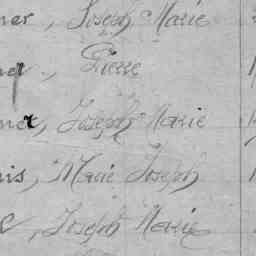 ner, Joseph Marie
Pierre
ner, Joseph Marie
is, Marie Joseph
, Joseph Marie